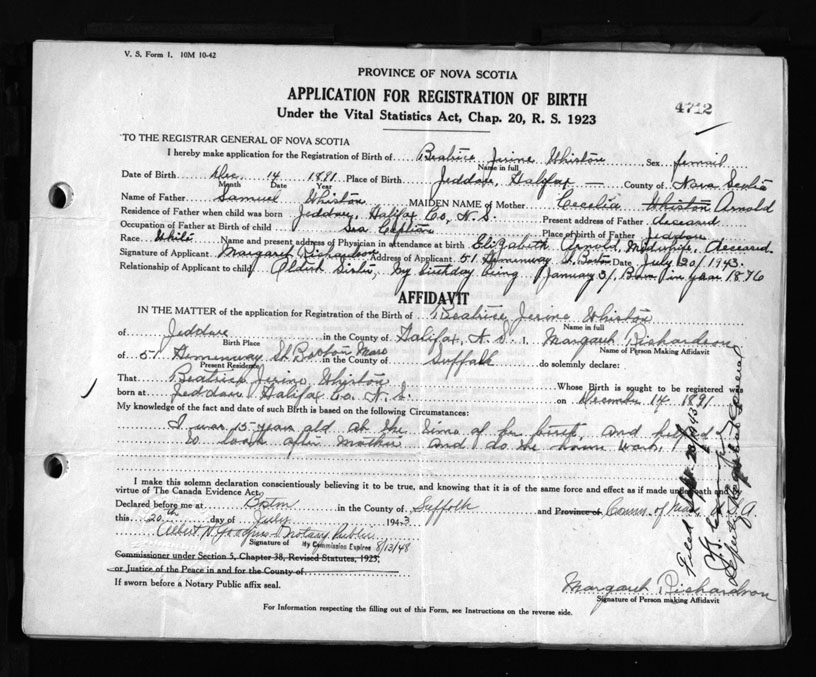 V. S. Form 1. 10M 10-42
PROVINCE OF NOVA SCOTIA
APPLICATION FOR REGISTRATION OF BIRTH
4712
Under the Vital Statistics Act, Chap. 20, R. S. 1923
TO THE REGISTRAR GENERAL OF NOVA SCOTIA
I hereby make application for the Registration of Birth of Beatrice Jerine Whiston Sex femail
Name in full
Date of Birth Dec. 14 1891 Place of Birth Jeddore, Halifax County of Nova Scotia
Month Date Year
Name of Father Samuel Whiston MAIDEN NAME of Mother Cecelia Whiston Arnold
Residence of Father when child was born Jeddore, Halifax Co, N. S. Present address of Father deceased
Occupation of Father at Birth of child Sea Captian Place of birth of Father Jeddore
Race White Name and present address of Physician in attendance at birth Elizabeth Arnold, Midwife, deceased
Signature of Applicant Margaret Richardson Address of Applicant 51 Hemenway St. Boston Date July 20/1943.
Relationship of Applicant to child Oldest Sister, my birthday being January 31 Born in year 1876
AFFIDAVIT
IN THE MATTER of the application for Registration of the Birth of Beatrice Jerine Whiston
Name in full
of Jeddore in the County of Halifax, N. S. I, Margaret Richardson
Birth Place Name of Person Making Affidavit
of 51 Hemenway St Boston Mass in the County of Suffolk do solemnly declare:
Present Residence
That Beatrice Jerine Whiston Whose Birth is sought to be registered was
born at Jeddore Halifax Co. N. S. on December 14 1891
My knowledge of the fact and date of such Birth is based on the following Circumstances:
I was 15 years old at the time of her birth, and helped
to look after mother and do the house work,
I make this solemn declaration conscientiously believing it to be true, and knowing that it is of the same force and effect as if made under oath and
virtue of The Canada Evidence Act.
Declared before me at Boston in the County of Suffolk and Province of Comm. of Mass U.S.A.
this 20th day of July 1943
Albert N. Notary Public
Signature of My Commission Expires 8/13/48
Commissioner under Section 5, Chapter 38, Revised Statutes, 1923,
or Justice of the Peace in and for the County of
If sworn before a Notary Public affix seal.
Margaret Richardson
Signature of Person making Affidavit
For Information respecting the filling out of this Form, see Instructions on the reverse side.
Deputy Registrar General